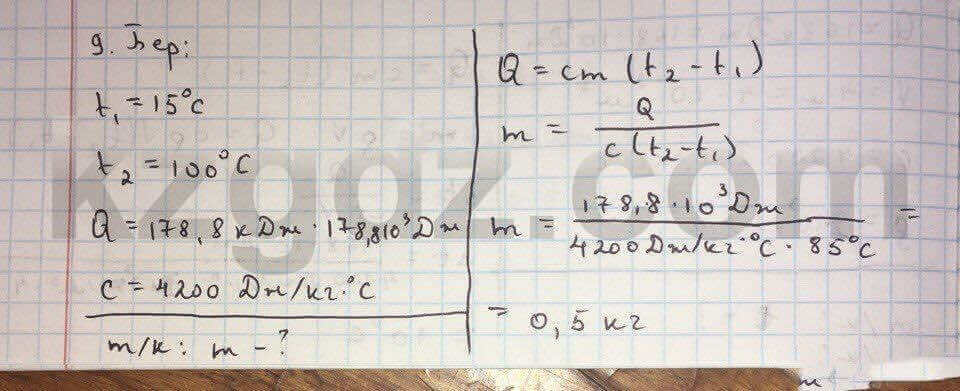 9. Бер:
t₁ = 15°C
t₂ = 100°C
Q = 178,8 кДж · 178,810³ Дж
c = 4200 Дж/кг·°C
т/к: m - ?
Q = cm (t₂ - t₁)
m = Q / c (t₂ - t₁)
m = 178,8 · 10³ Дж / 4200 Дж/кг·°C · 85°C =
= 0,5 кг
kzgoz.com